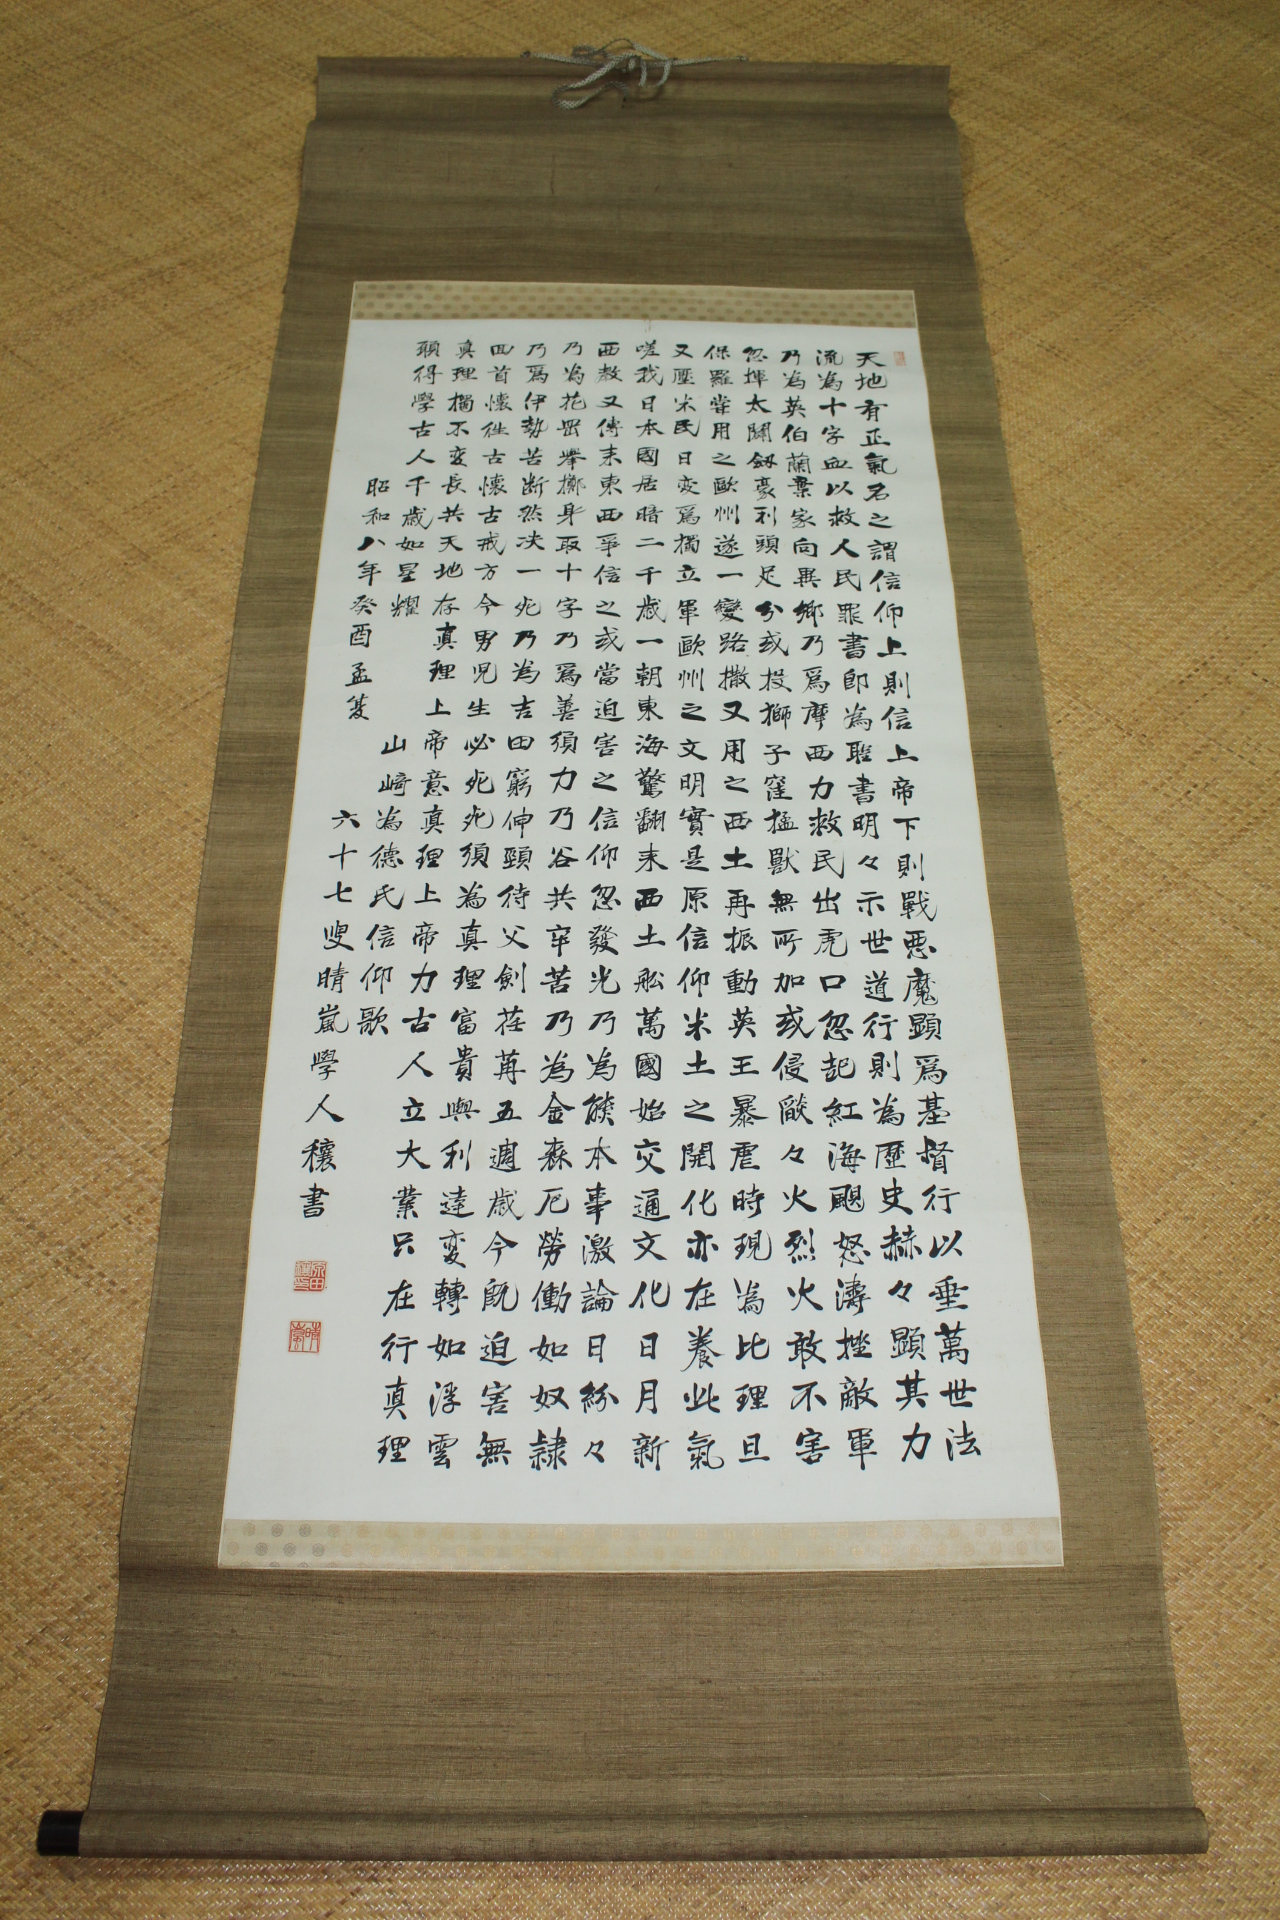 天地有正氣名之謂信仰上則信上帝下則戰悪魔顕爲基督行以垂萬世法
流為十字血以救人民罪書即為聖書明々示世道行則為歴史赫々顕其力
乃為英伯蘭棄家向異郷乃爲摩西力救民出虎口忽起紅海颶怒濤挫敵軍
忽揮太闢劔豪利頭足分或投獅子窪猛獸無所加或侵燄々火烈火敢不害
保羅甞用之歐州遂一變路撒又用之西土再振動英王暴虐時現為比理旦
又壓米民日変爲獨立軍歐州之文明實是原信仰米土之開化亦在養此氣
嗟我日本國居暗二千歳一朝東海驚翻来西土舩萬國始交通文化日月新
西教又傳来東西爭信之或當迫害之信仰忽發光乃為熊本事激論日紛々
乃為花岡挙擲身取十字乃爲善須力乃谷共辛苦乃為金森厄勞働如奴隷
乃爲伊勢苦断然决一死乃為吉田窮伸頸待父劍荏苒五週歳今既迫害無
回首懐往古懐古戒方今男児生必死死須為真理富貴與利達変轉如浮雲
真理獨不変長共天地存真理上帝意真理上帝力古人立大業只在行真理
頭得學古人千歳如星耀
山﨑為德氏信仰歌
昭和八年癸酉孟夏
六十七叟晴嵐學人穰書